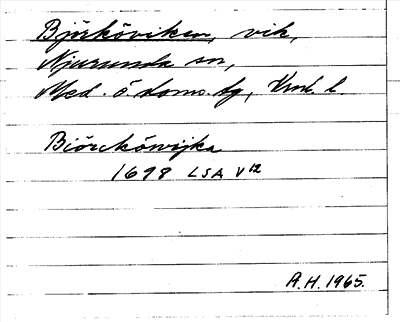 Björköviken, vik,
Njurunda sn,
Med. ö. doms. tg, Vrnl. l.
Biörcköwijka
1698 LSA V12
A.H. 1965.